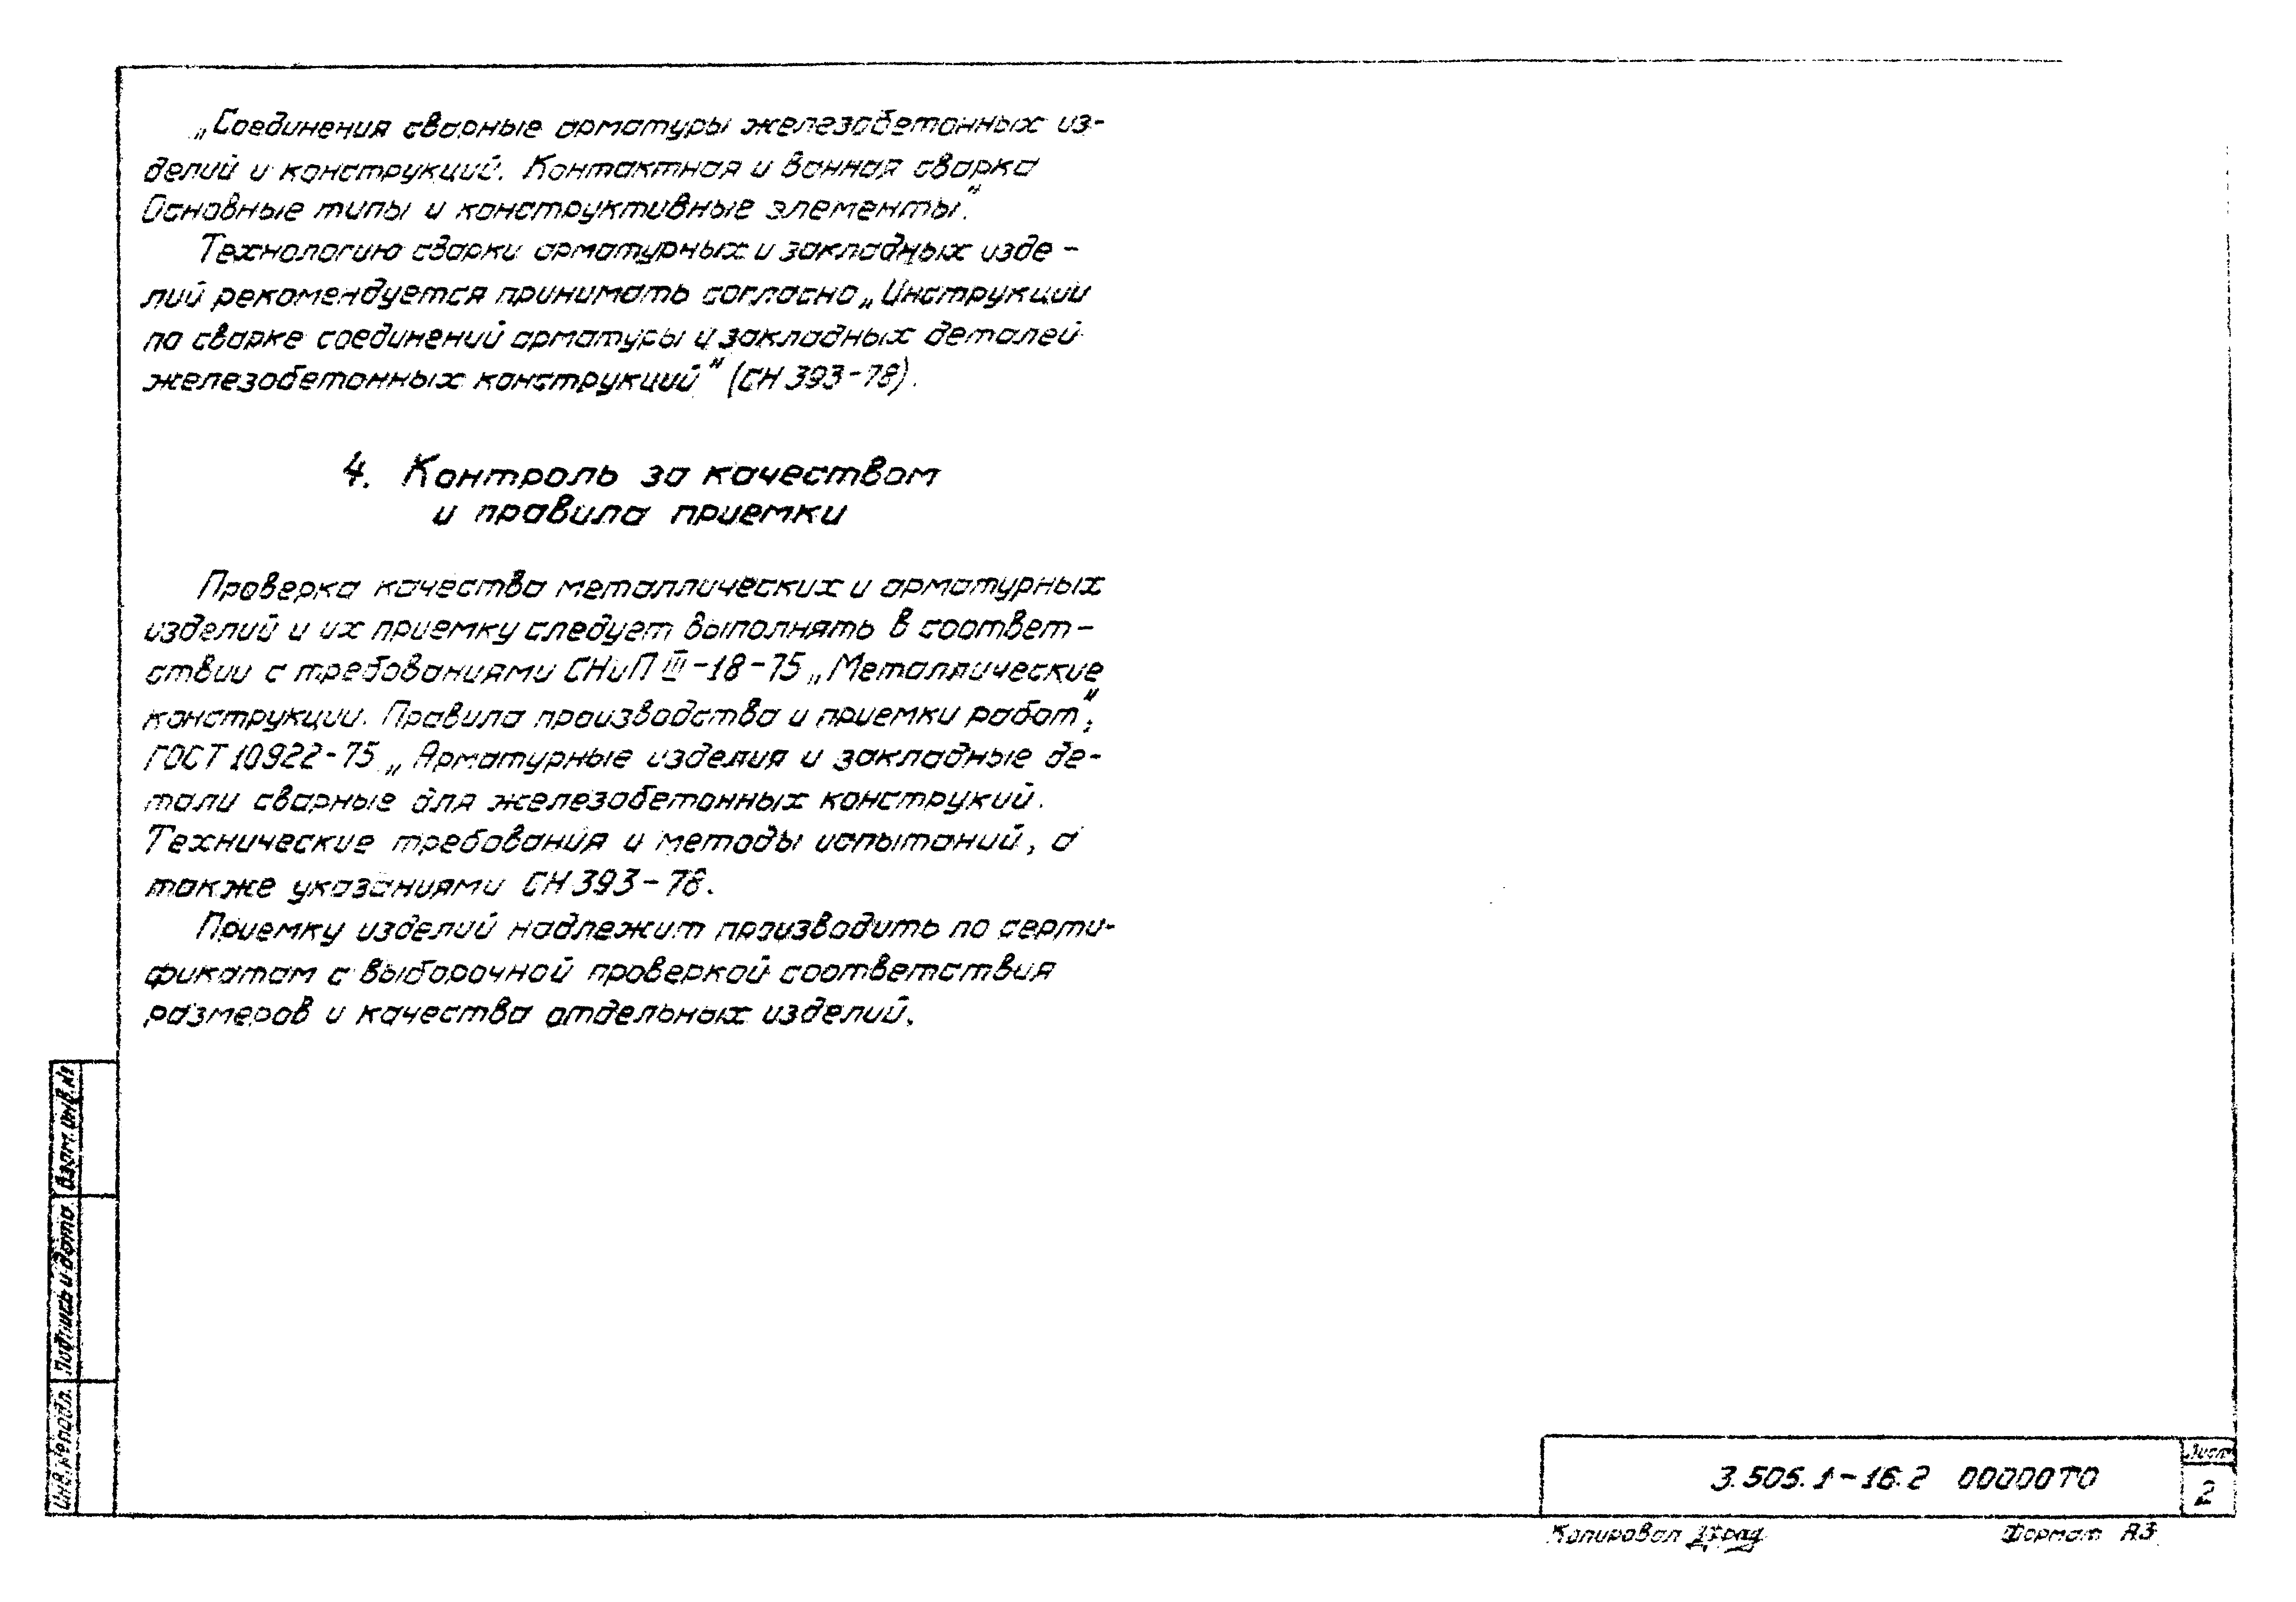 „Соединения сварные арматуры железобетонных из-
делий и конструкций. Контактная и ванная сварка
Основные типы и конструктивные элементы".
Технологию сварки арматурных и закладных изде-
лий рекомендуется принимать согласно „Инструкции
по сварке соединений арматуры и закладных деталей
железобетонных конструкций" (СН 393-78).
4. Контроль за качеством
и правила приемки
Проверка качества металлических и арматурных
изделий и их приемку следует выполнять в соответ-
ствии с требованиями СНиП III-18-75 „Металлические
конструкции. Правила производства и приемки работ",
ГОСТ 10922-75 „Арматурные изделия и закладные де-
тали сварные для железобетонных конструкий.
Технические требования и методы испытаний, а
также указаниями СН 393-78.
Приемку изделий надлежит производить по серти-
фикатам с выборочной проверкой соответствия
размеров и качества отдельных изделий.
Взам. инв. №
Подпись и дата
Инв. № подл.
3.505.1-16.2 00000ТО
Лист
2
Копировал
Формат А3